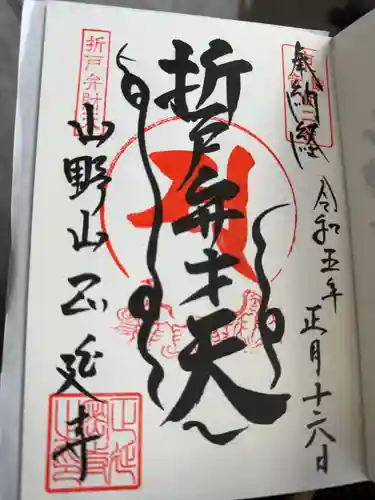 奉納経
令和五年 正月十六日
折戸弁才天
折戸弁財
山野山 正延寺